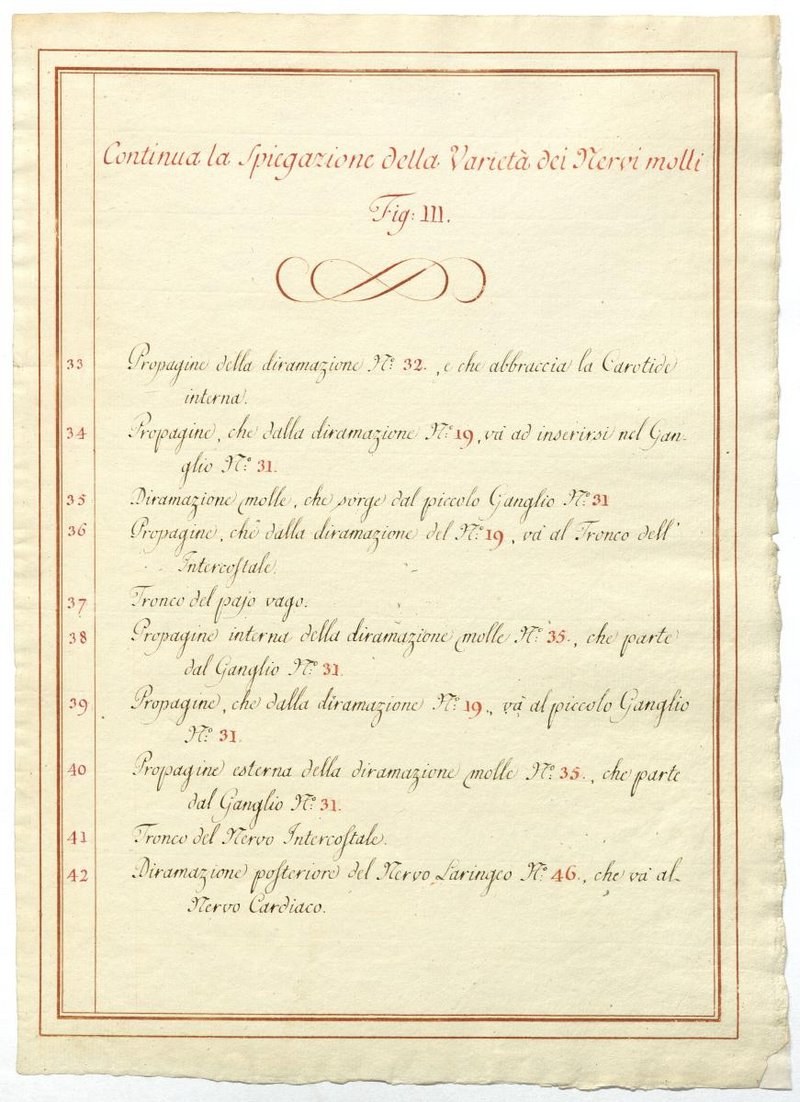 Continua la Spiegazione della Varietà dei Nervi molli
Fig: III.
33 Propagine della diramazione N.º 32., e che abbraccia la Carotide
interna.
34 Propagine, che dalla diramazione N.º 19, và ad inserirsi nel Gan-
glio N.º 31.
35 Diramazione molle, che sorge dal piccolo Ganglio N.º 31
36 Propagine, che dalla diramazione del N.º 19, và al Tronco dell'
Intercostale.
37 Tronco del pajo vago.
38 Propagine interna della diramazione molle N.º 35., che parte
dal Ganglio N.º 31.
39 Propagine, che dalla diramazione N.º 19., và al piccolo Ganglio
N.º 31.
40 Propagine esterna della diramazione molle N.º 35., che parte
dal Ganglio N.º 31.
41 Tronco del Nervo Intercostale.
42 Diramazione posteriore del Nervo Laringeo N.º 46., che và al
Nervo Cardiaco.